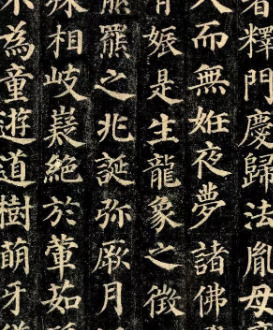 著釋門慶歸法胤母
而無姙夜夢諸佛
有娠是生龍象之徵
熊羆之兆誕弥厥月
殊相岐嶷絶於葷茹
不為童遊道樹萌牙